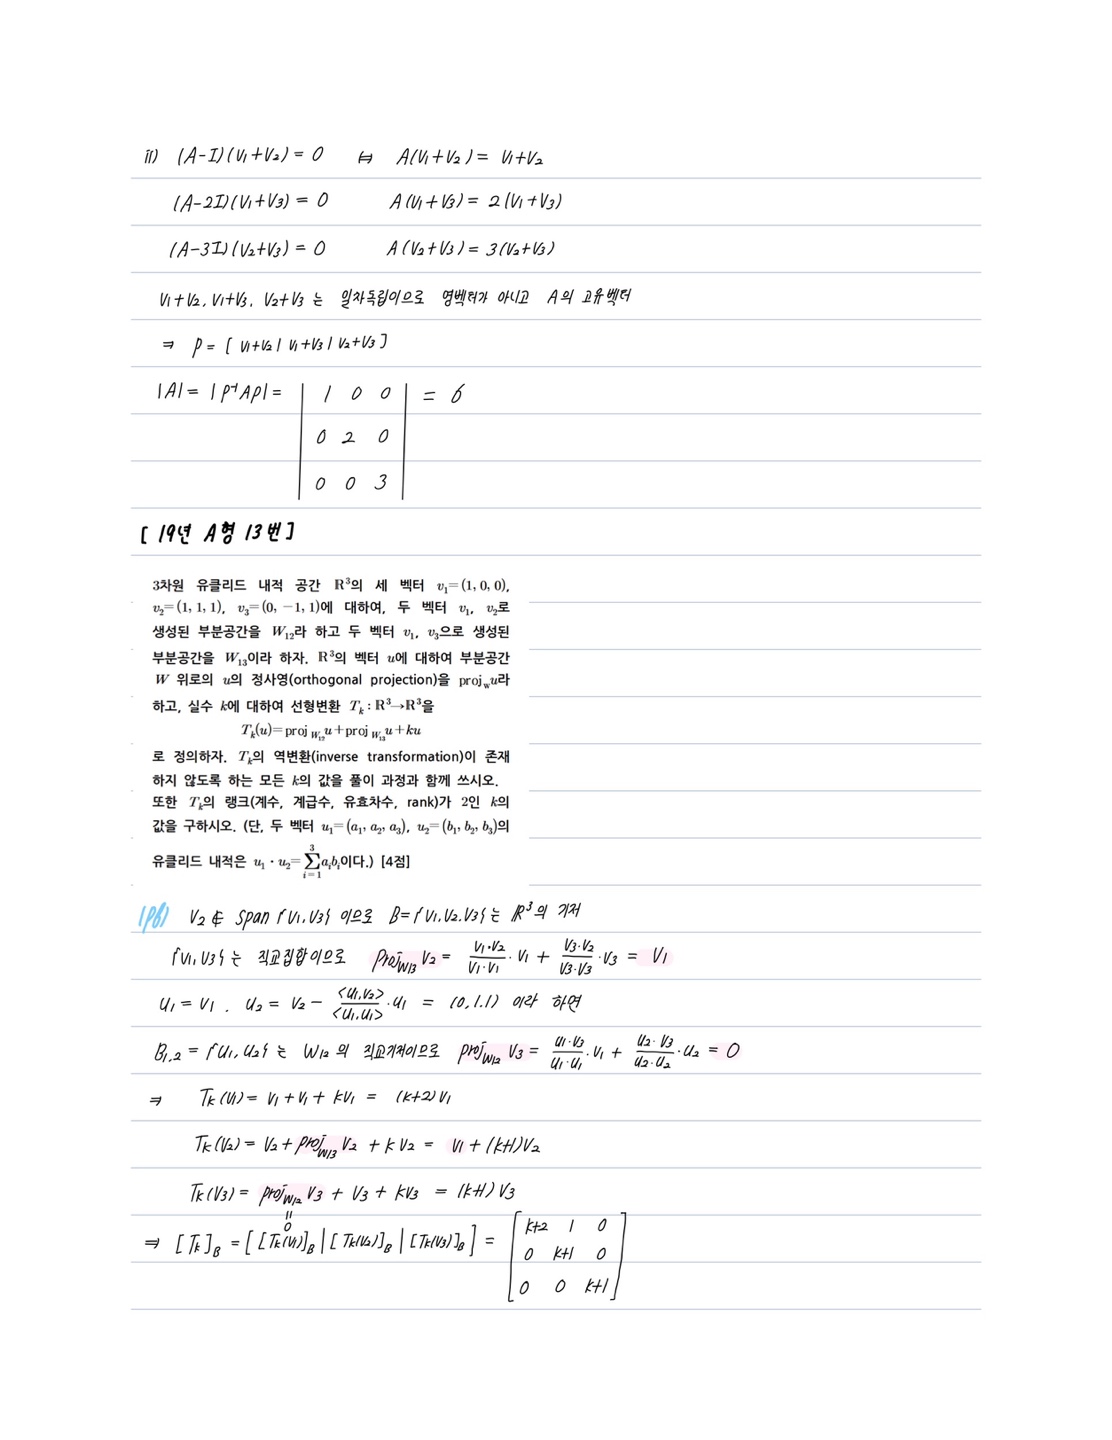 ii) (A-I)(V₁+V₂) = 0 ⇔ A(V₁+V₂) = V₁+V₂
(A-2I)(V₁+V₃) = 0 A(V₁+V₃) = 2(V₁+V₃)
(A-3I)(V₂+V₃) = 0 A(V₂+V₃) = 3(V₂+V₃)
V₁+V₂, V₁+V₃, V₂+V₃ 는 일차독립이므로 영벡터가 아니고 A의 고유벡터
⇒ P = [ V₁+V₂ | V₁+V₃ | V₂+V₃ ]
|A| = |P⁻¹AP| = | 1 0 0 | = 6
0 2 0
0 0 3
[ 19년 A형 13번 ]
3차원 유클리드 내적 공간 ℝ³의 세 벡터 v₁=(1, 0, 0),
v₂=(1, 1, 1), v₃=(0, −1, 1)에 대하여, 두 벡터 v₁, v₂로
생성된 부분공간을 W₁₂라 하고 두 벡터 v₁, v₃으로 생성된
부분공간을 W₁₃이라 하자. ℝ³의 벡터 u에 대하여 부분공간
W 위로의 u의 정사영(orthogonal projection)을 proj_w u라
하고, 실수 k에 대하여 선형변환 Tₖ : ℝ³→ℝ³을
Tₖ(u)=proj_W₁₂ u+proj_W₁₃ u+ku
로 정의하자. Tₖ의 역변환(inverse transformation)이 존재
하지 않도록 하는 모든 k의 값을 풀이 과정과 함께 쓰시오.
또한 Tₖ의 랭크(계수, 계급수, 유효차수, rank)가 2인 k의
값을 구하시오. (단, 두 벡터 u₁=(a₁, a₂, a₃), u₂=(b₁, b₂, b₃)의
유클리드 내적은 u₁ · u₂=∑_{i=1}^{3} aᵢbᵢ이다.) [4점]
(pf) V₂ ∉ span{V₁,V₃} 이므로 B={V₁,V₂,V₃}는 ℝ³의 기저
{V₁,V₃}는 직교집합이므로 proj_W₁₃ V₂ = (V₁·V₂)/(V₁·V₁)·V₁ + (V₃·V₂)/(V₃·V₃)·V₃ = V₁
u₁ = V₁, u₂ = V₂ - <u₁,V₂>/<u₁,u₁>·u₁ = (0,1,1) 이라 하면
B₁,₂ = {u₁,u₂}는 W₁₂의 직교기저이므로 proj_W₁₂ V₃ = (u₁·V₃)/(u₁·u₁)·V₁ + (u₂·V₃)/(u₂·u₂)·u₂ = 0
⇒ Tₖ(V₁) = V₁+V₁+kV₁ = (k+2)V₁
Tₖ(V₂) = V₂+proj_W₁₃ V₂ + kV₂ = V₁+(k+1)V₂
Tₖ(V₃) = proj_W₁₂ V₃ + V₃ + kV₃ = (k+1)V₃
=
0
⇒ [Tₖ]_B = [ [Tₖ(V₁)]_B | [Tₖ(V₂)]_B | [Tₖ(V₃)]_B ] = [ k+2 1 0
0 k+1 0
0 0 k+1 ]